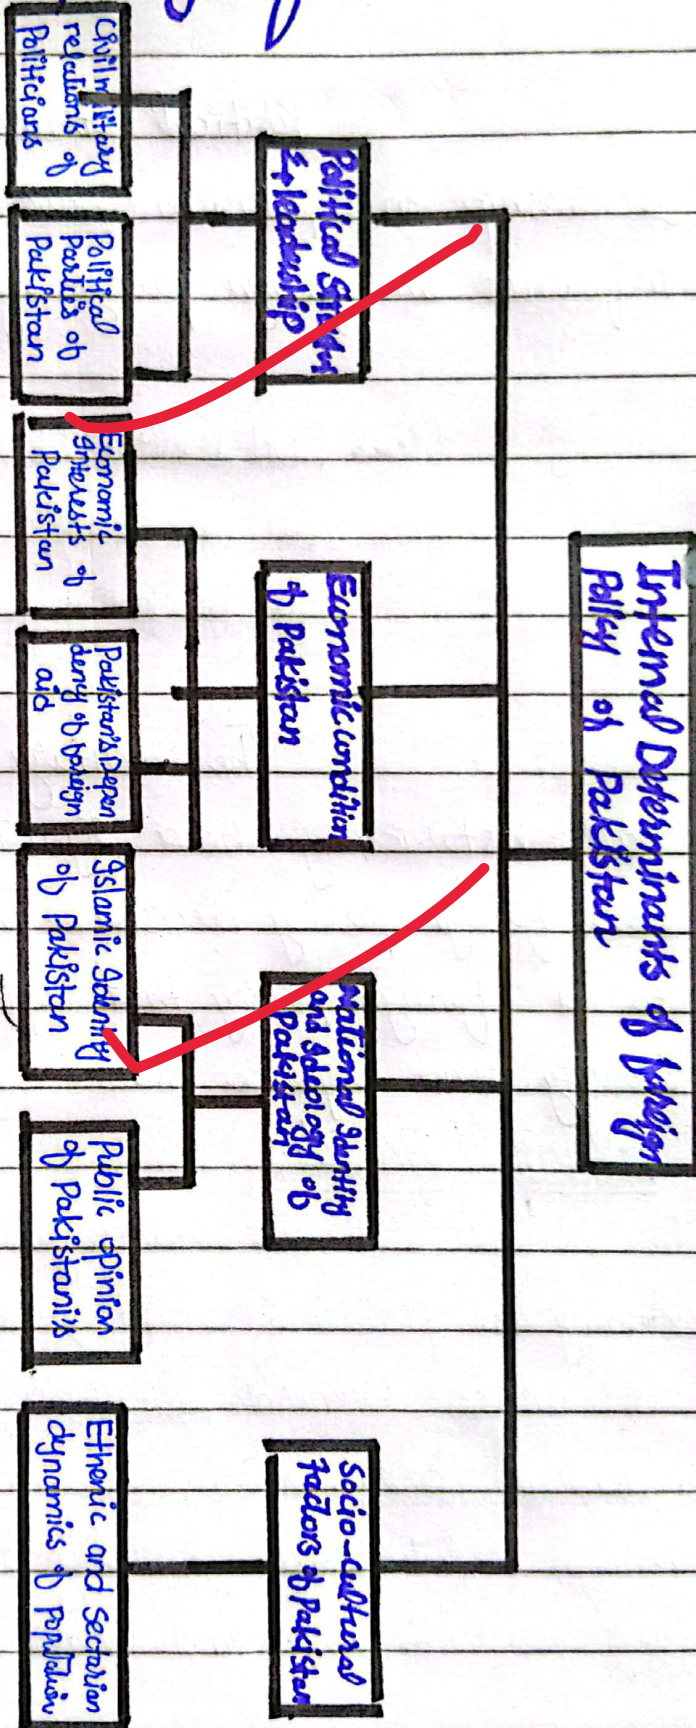 Internal Determinants of foreign
Policy of Pakistan
Political
& leadership
Economic condition
of Pakistan
National Identity
and Ideology of
Pakistan
Socio-cultural
factors of Pakistan
Civil military
relations of
Politicians
Political
Parties of
Pakistan
Economic
Interests of
Pakistan
Pakistan's Depen
deny of foreign
aid
Islamic Idenity
of Pakistan
Public opinion
of Pakistani's
Ethenic and Sectarian
dynamics of Population